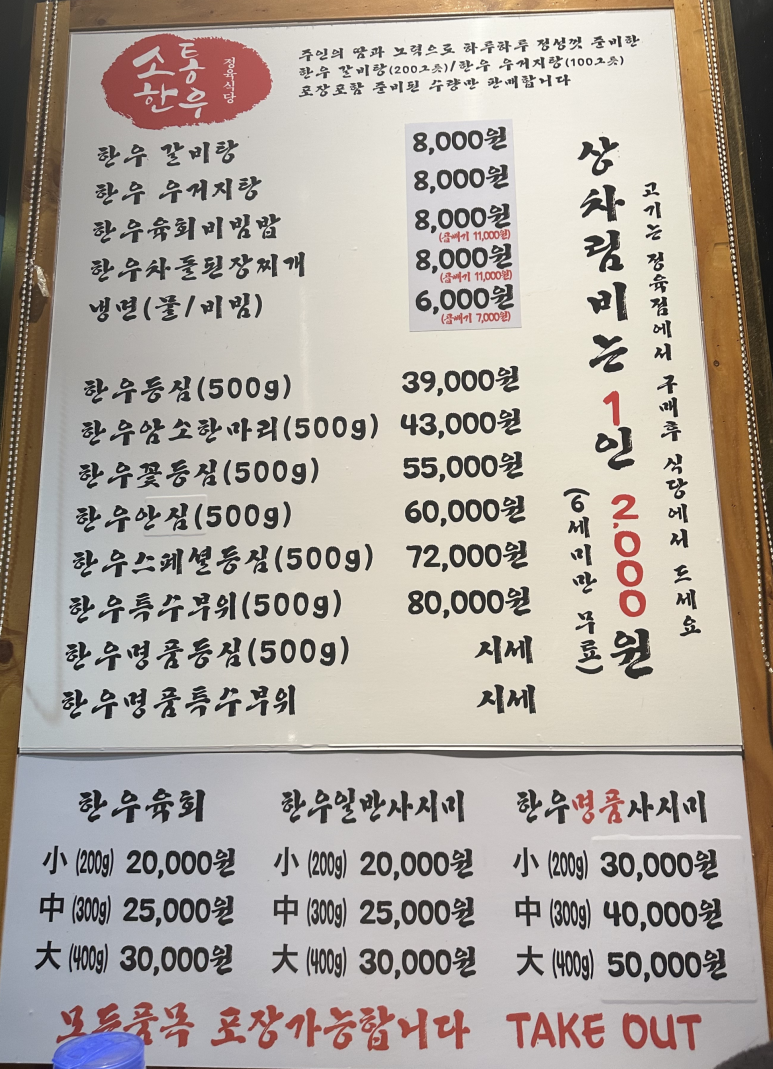 소통
한우
정육식당
주인의 땀과 노력으로 하루하루 정성껏 준비한
한우 갈비탕(200그릇)/한우 우거지탕(100그릇)
포장포함 준비된 수량만 판매합니다
한우 갈비탕 8,000원
한우 우거지탕 8,000원
한우육회비빔밥 8,000원
(곱빼기 11,000원)
한우차돌된장찌개 8,000원
(곱빼기 11,000원)
냉면(물/비빔) 6,000원
(곱빼기 7,000원)
한우등심(500g) 39,000원
한우암소한마리(500g) 43,000원
한우꽃등심(500g) 55,000원
한우안심(500g) 60,000원
한우스페셜등심(500g) 72,000원
한우특수부위(500g) 80,000원
한우명품등심(500g) 시세
한우명품특수부위 시세
고기는 정육점에서 구매후 식당에서 드세요
상차림비는 1인 2,000원
(6세미만 무료)
한우육회
小 (200g) 20,000원
中 (300g) 25,000원
大 (400g) 30,000원
한우일반사시미
小 (200g) 20,000원
中 (300g) 25,000원
大 (400g) 30,000원
한우명품사시미
小 (200g) 30,000원
中 (300g) 40,000원
大 (400g) 50,000원
모든품목 포장가능합니다 TAKE OUT